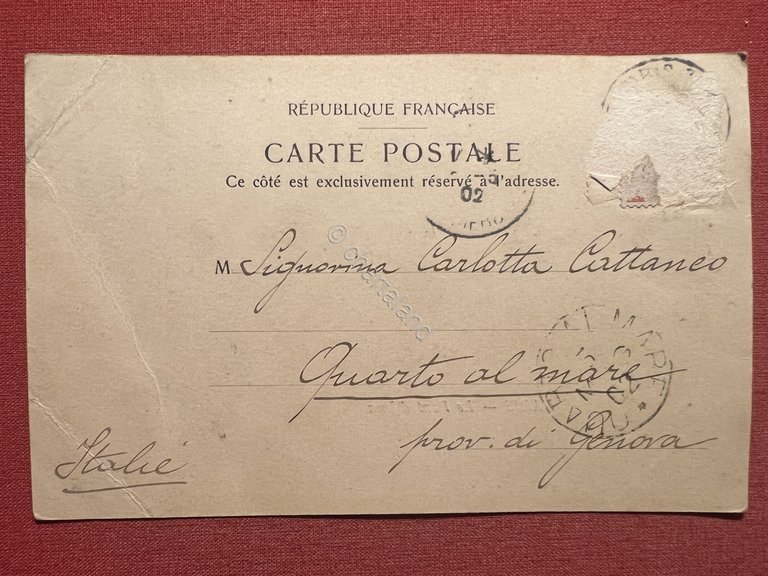 RÉPUBLIQUE FRANÇAISE
CARTE POSTALE
Ce côté est exclusivement réservé à l'adresse.
02
M Signorina Carlotta Cattaneo
Quarto al mare
MARE
prov. di Genova
Italie
© cherraland